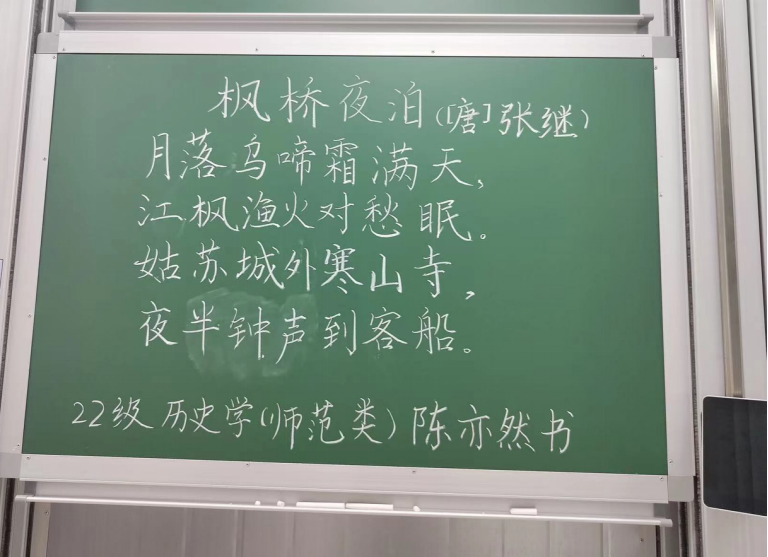 枫桥夜泊([唐]张继)
月落乌啼霜满天，
江枫渔火对愁眠。
姑苏城外寒山寺，
夜半钟声到客船。
22级历史学(师范类)陈亦然书